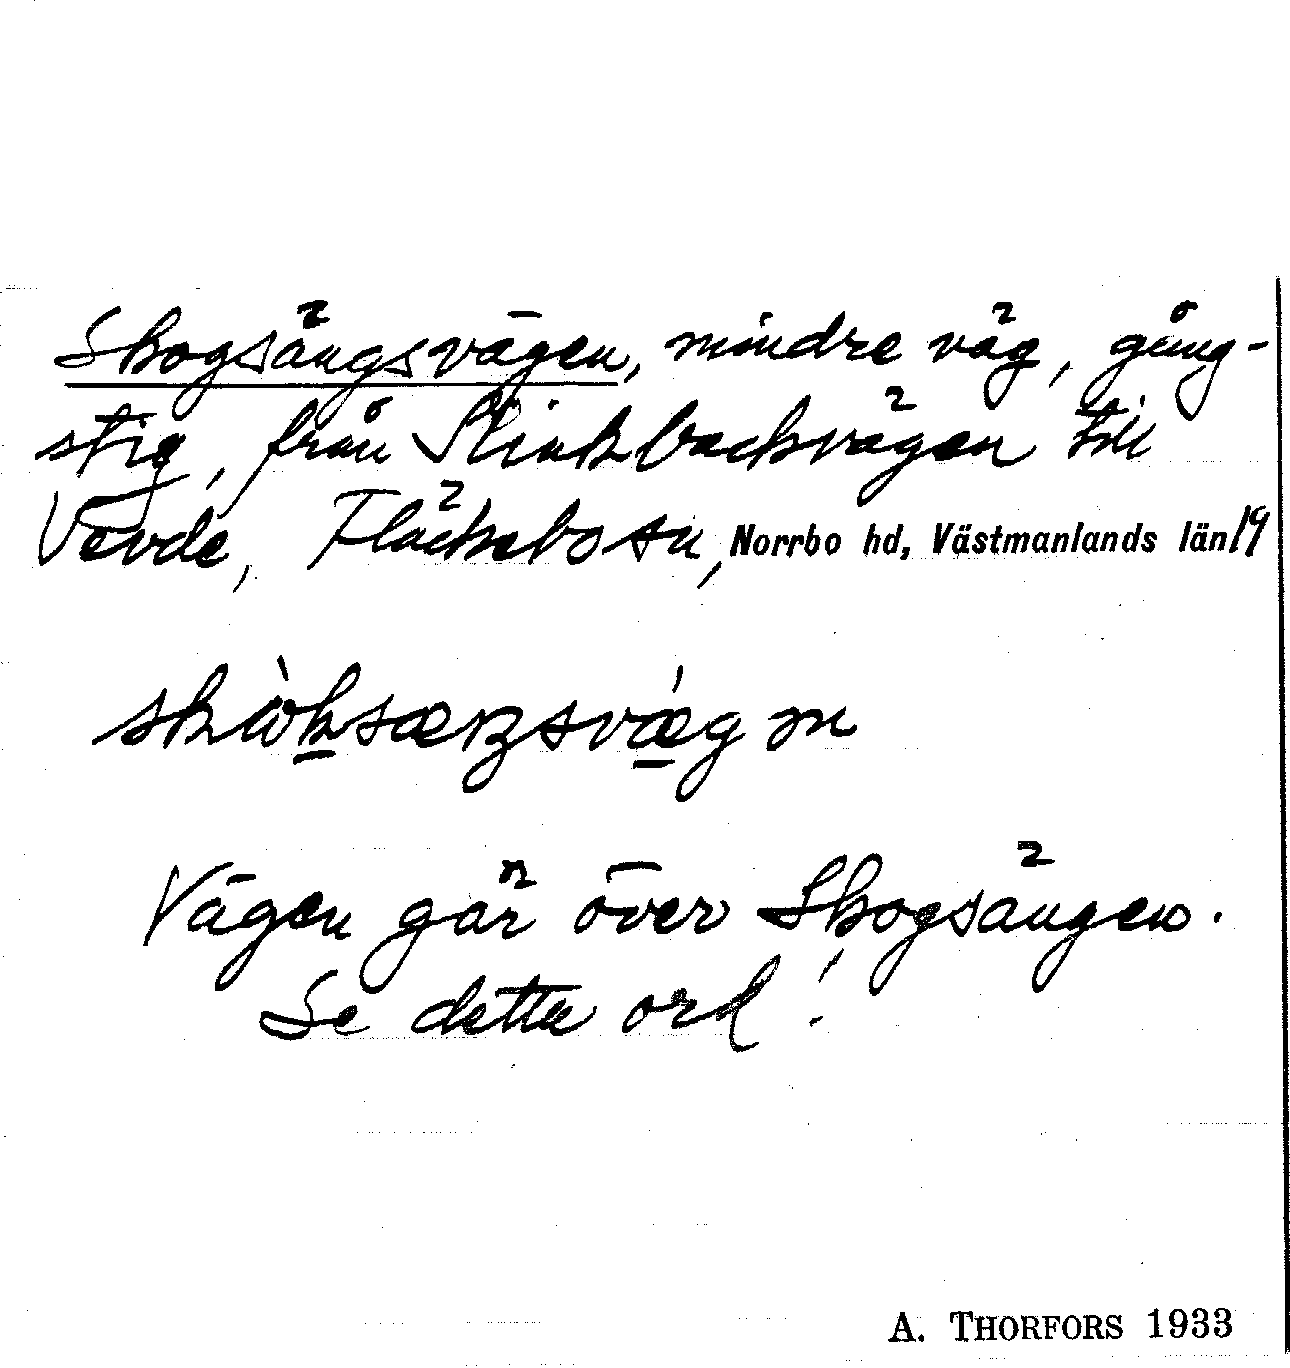 Skogsängsvägen, mindre väg, gång-
stig, från Slinkbackvägen till
Vevde, Fläckebo sn, Norrbo hd, Västmanlands län 19
skὼksæŋsvǽgṇ
Vägen går över Skogsängen.
Se detta ord!
A. THORFORS 1933